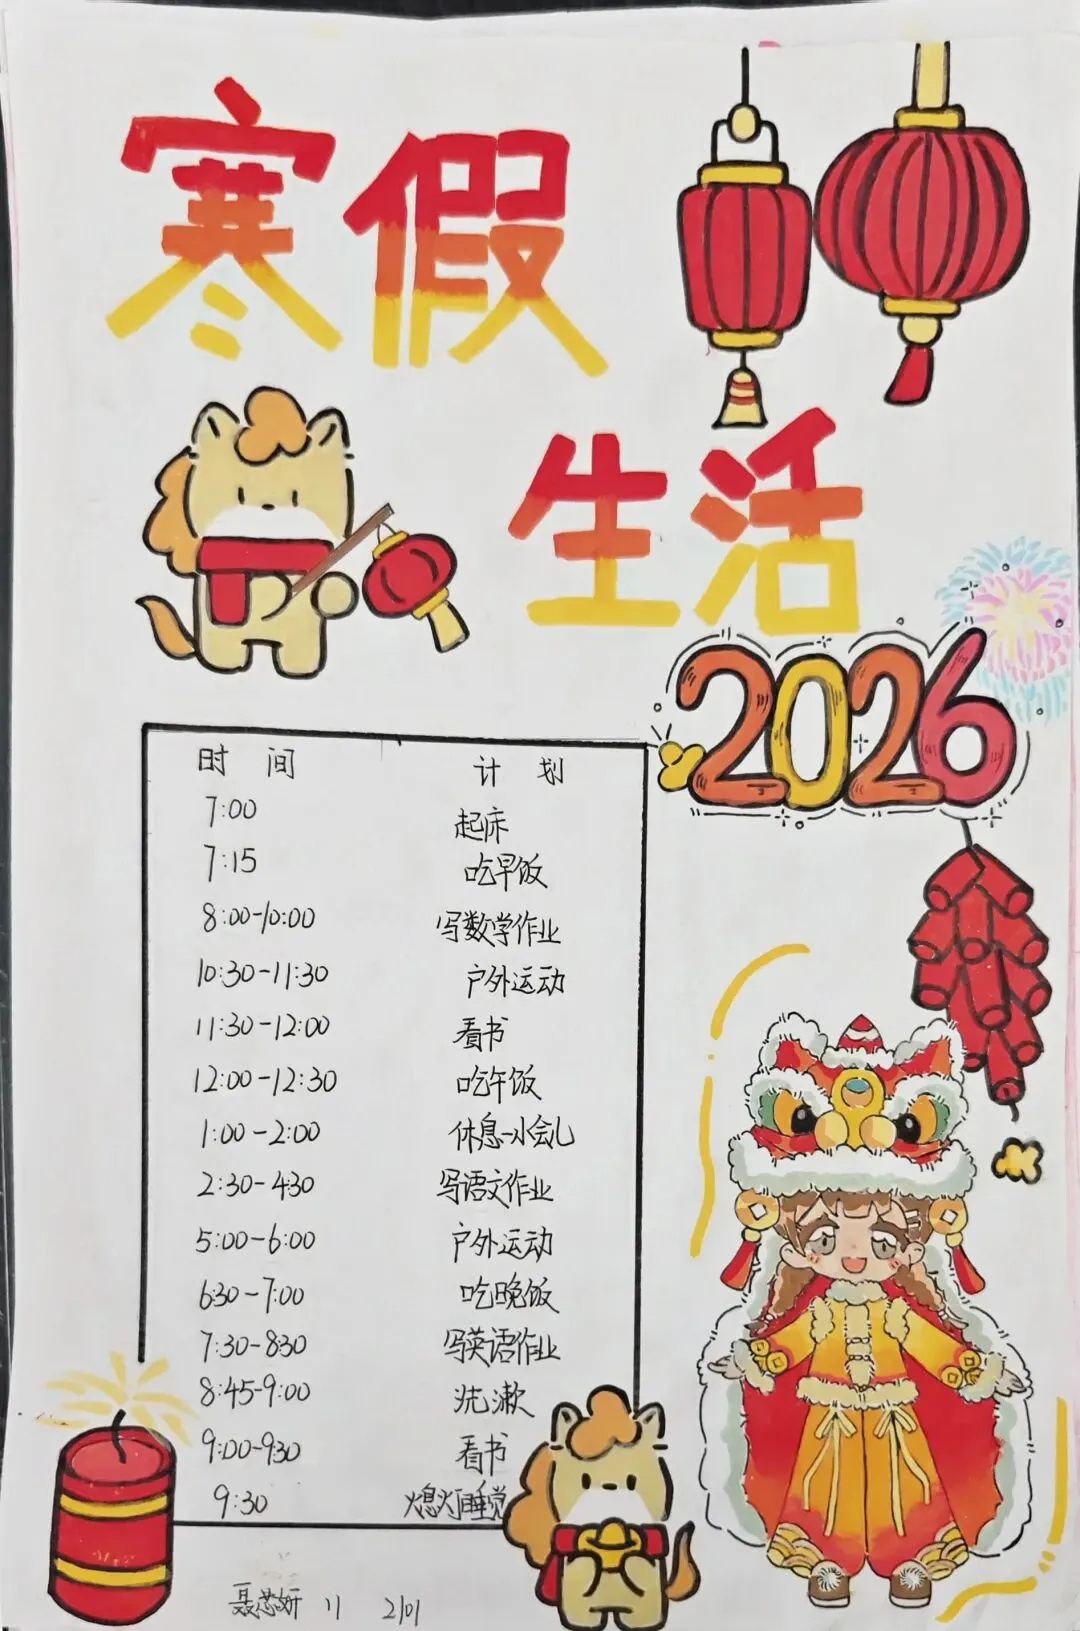 寒假
生活
2026
时间 计划
7:00 起床
7:15 吃早饭
8:00-10:00 写数学作业
10:30-11:30 户外运动
11:30-12:00 看书
12:00-12:30 吃午饭
1:00-2:00 休息一小会儿
2:30-4:30 写语文作业
5:00-6:00 户外运动
6:30-7:00 吃晚饭
7:30-8:30 写英语作业
8:45-9:00 洗漱
9:00-9:30 看书
9:30 熄灯睡觉
聂芯妍 11 2101